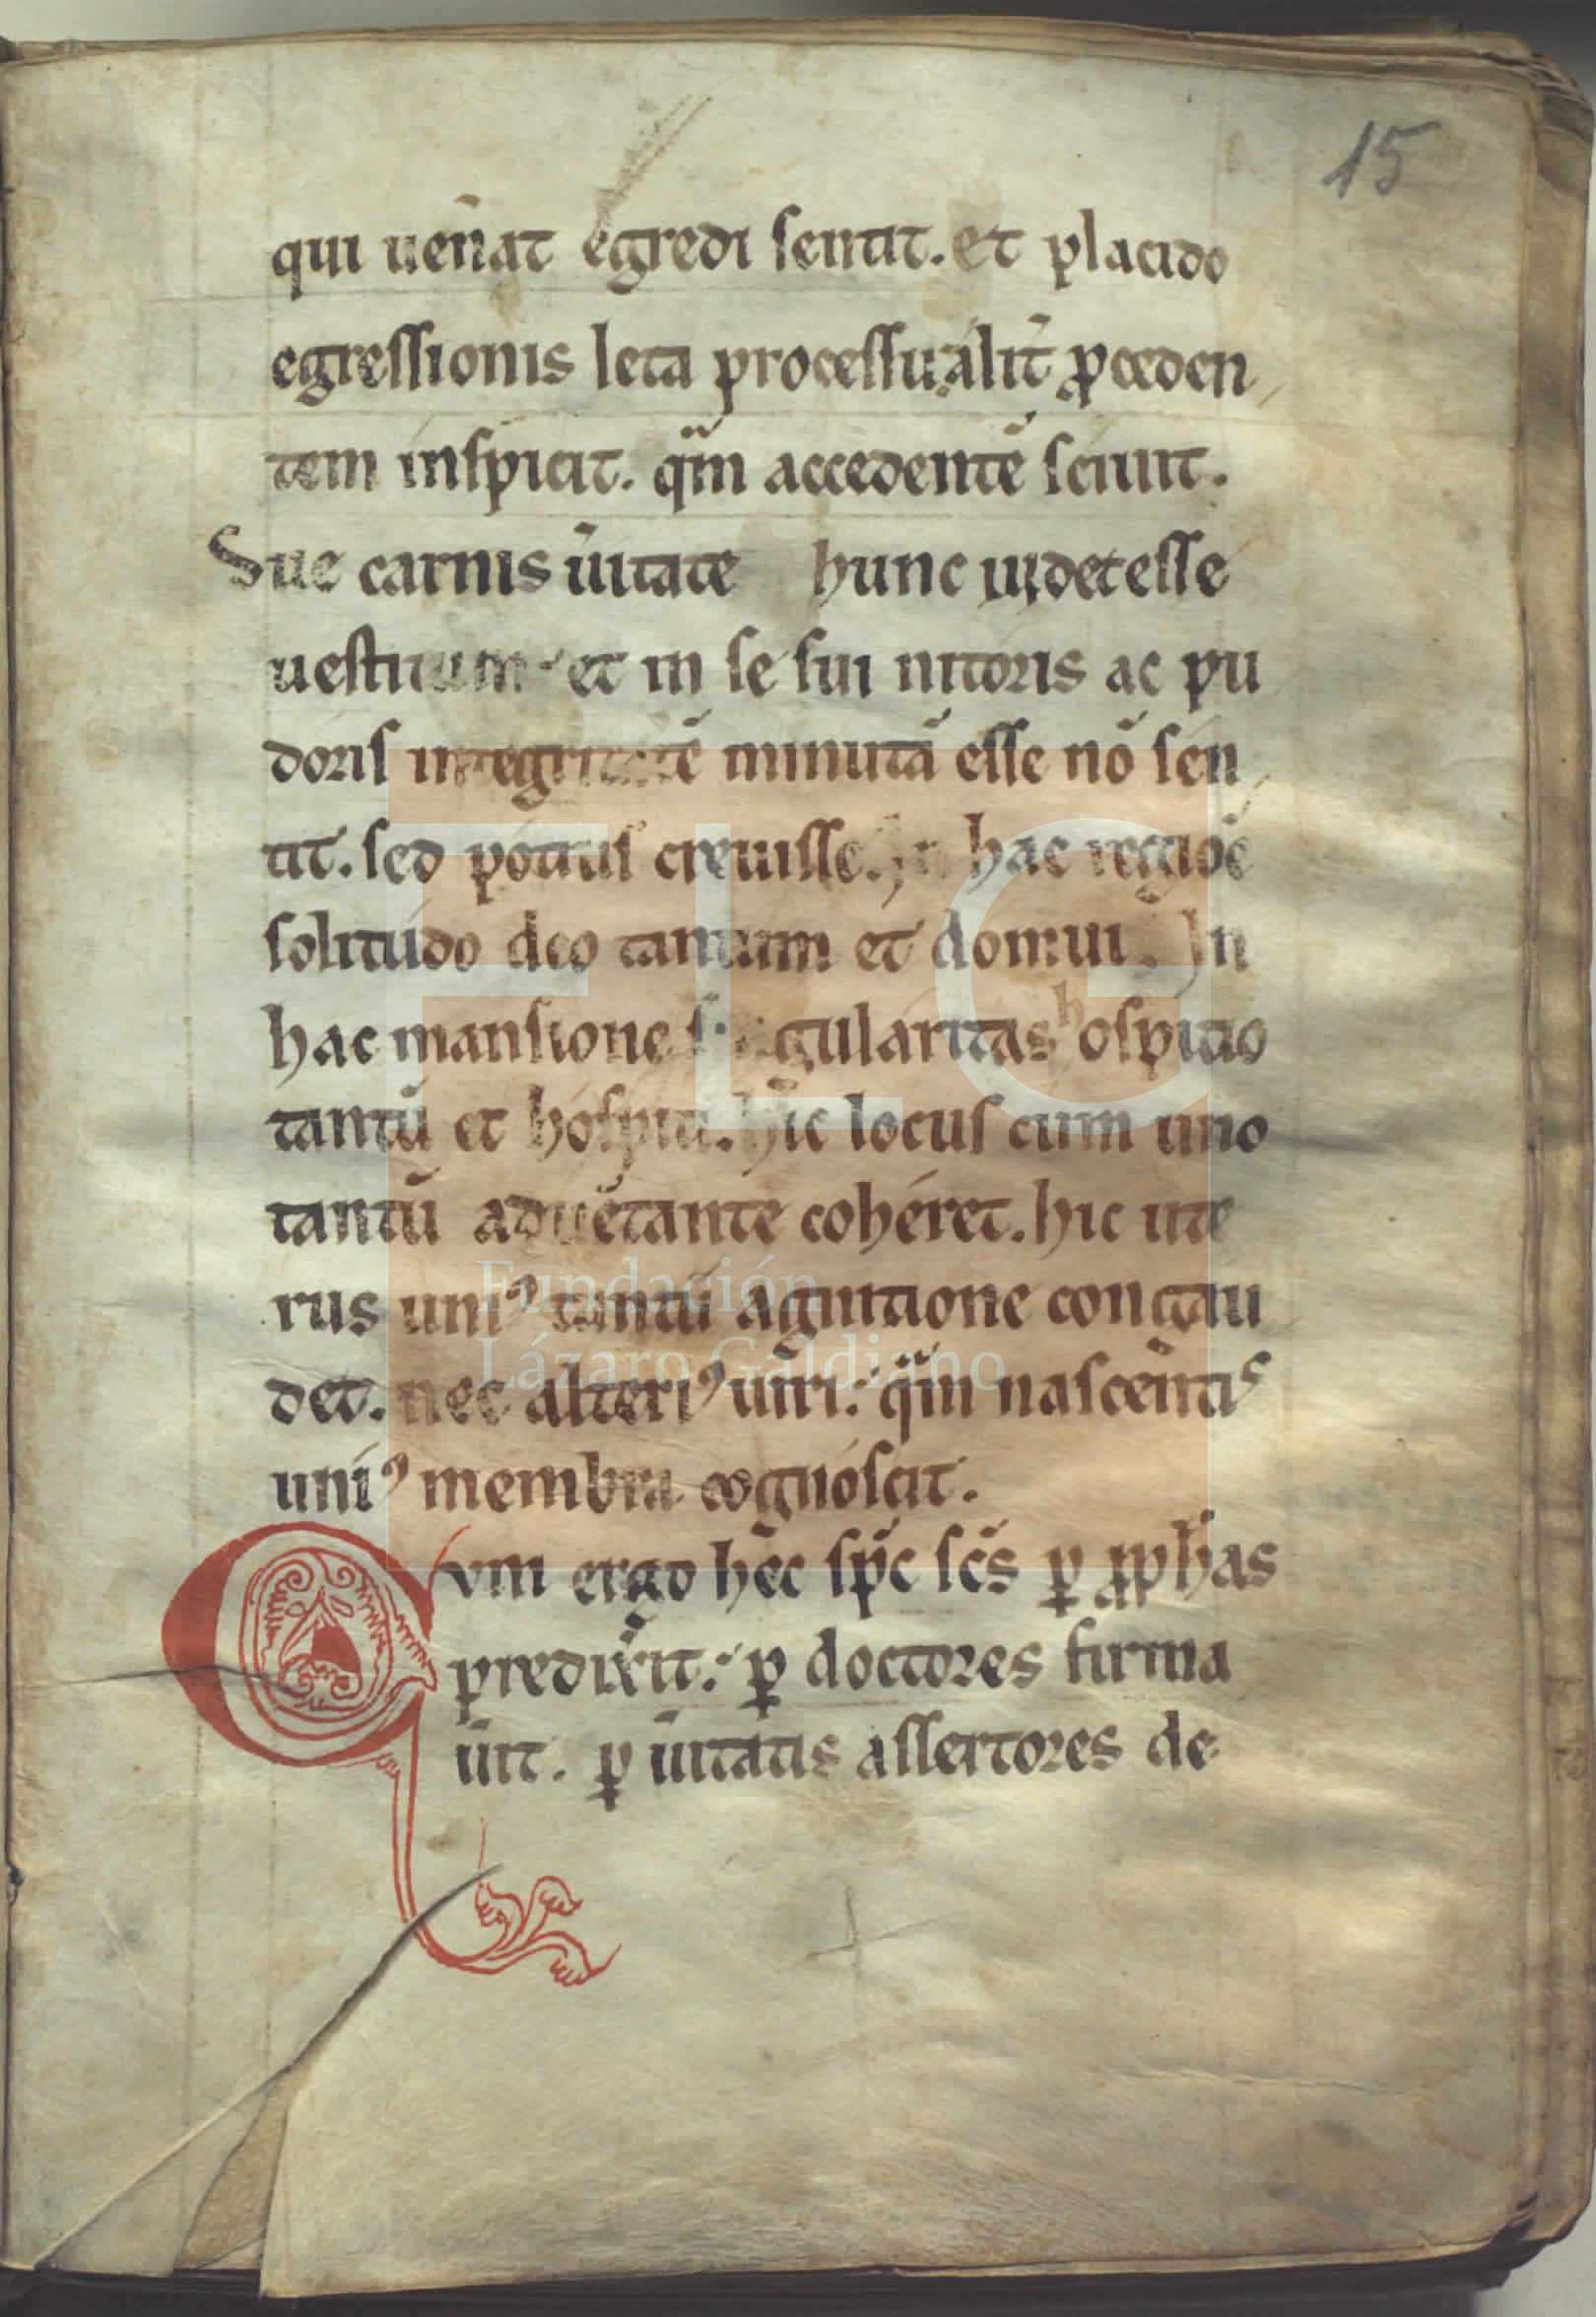 15
qui uen̄at egredi sentit. et placido
egressionis leta processu. alit̄ p̄ceden
tem inspicit. qm̄ accedentē sciuit.
Sue carnis ūitate hunc uidet esse
uestitum. et in se sui nitoris ac pu
doris integritatē minutā esse nō sen
tit. sed potius creuisse. In hac regiōe
solitudo deo tantum et domui. In
hac mansione singularitas hospitio
tantū et hospiti. hic locus cum uno
tantū aduētante coheret. hic ute
rus uniꝰ tantū agnitione congau
det. nec alteriꝰ uiri: qm̄ nascentis
uniꝰ membra cognoscit.
Cum ergo hec sp̄c sc̄s ꝑ ꝓph̄as
predixerit: ꝑ doctores firma
uit. ꝑ ūitatis assertores de
FLG
Fundación
Lázaro Galdiano